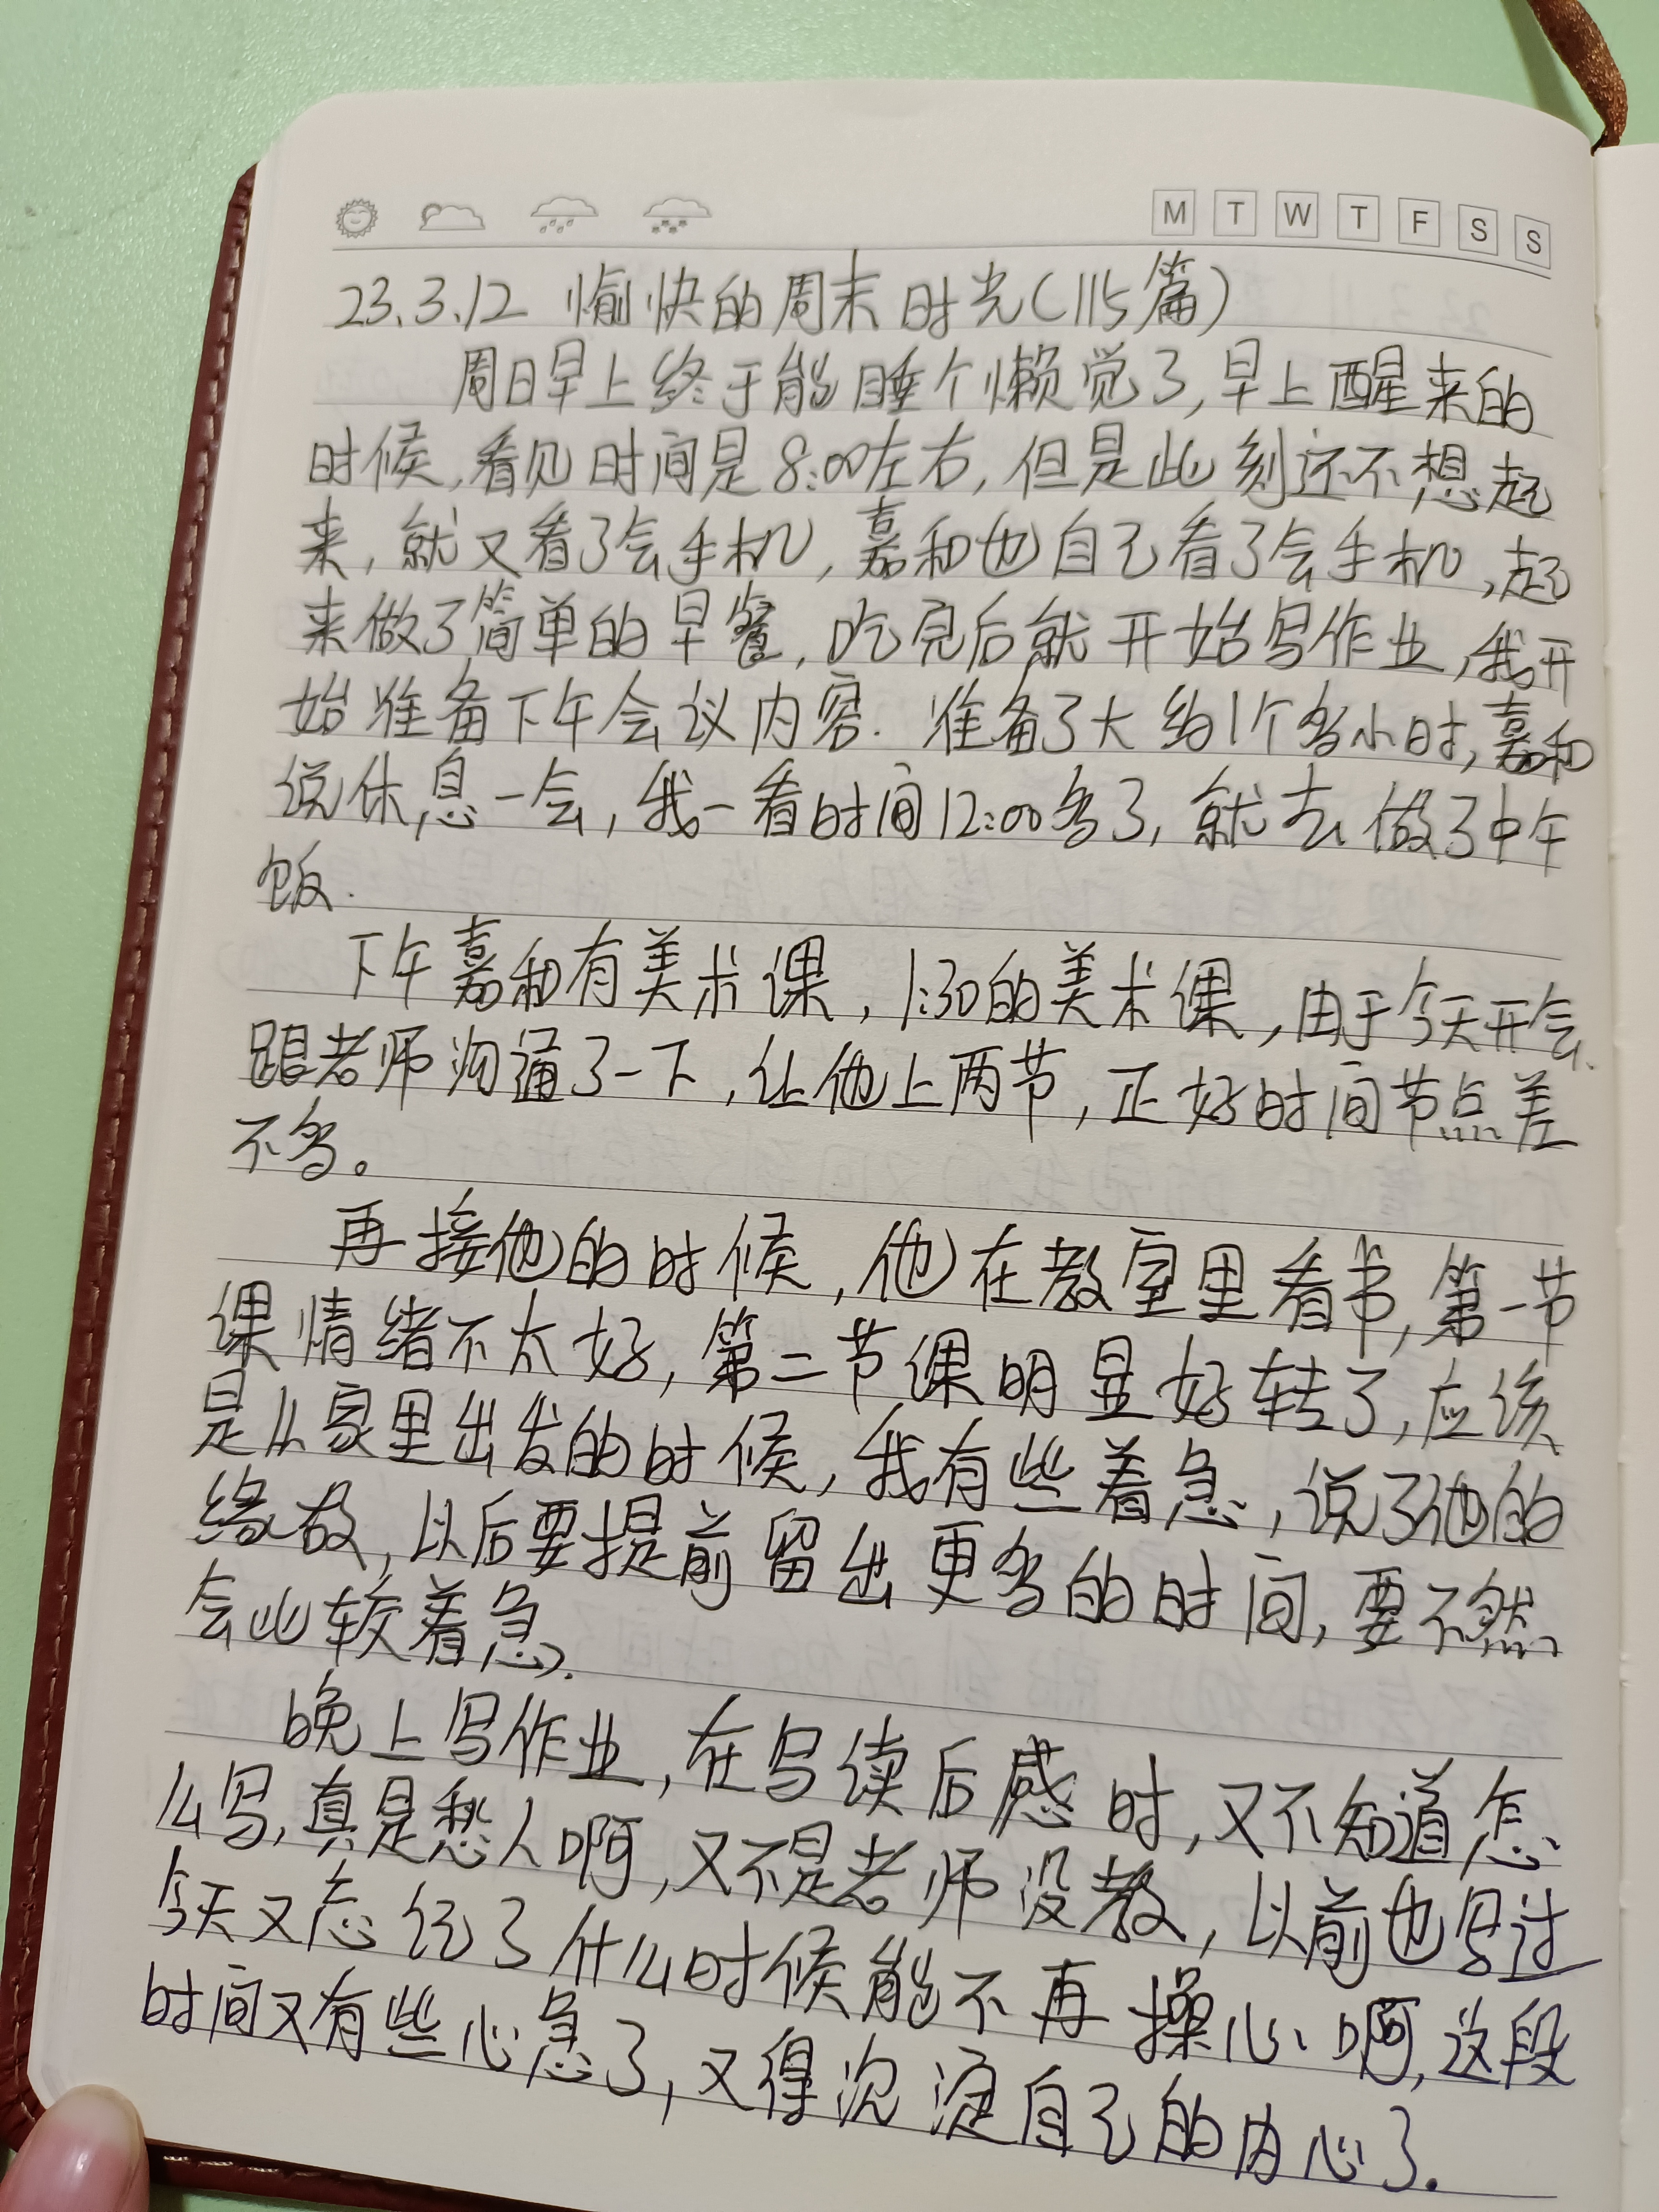 M T W T F S S
23.3.12 愉快的周末时光(115篇)
周日早上终于能睡个懒觉了,早上醒来的
时候,看见时间是8:00左右,但是此刻还不想起
来,就又看了会手机,嘉和也自己看了会手机,起
来做了简单的早餐,吃完后就开始写作业,我开
始准备下午会议内容.准备了大约1个多小时,嘉和
说休息一会,我一看时间12:00多了,就去做了中午
饭.
下午嘉和有美术课,1:30的美术课,由于今天开会,
跟老师沟通了一下,让他上两节,正好时间节点差
不多。
再接他的时候,他在教室里看书,第一节
课情绪不太好,第二节课明显好转了,应该
是从家里出发的时候,我有些着急,说了他的
缘故,以后要提前留出更多的时间,要不然
会比较着急.
晚上写作业,在写读后感时,又不知道怎
么写,真是愁人啊,又不是老师没教,以前也写过
今天又忘记了什么时候能不再操心啊,这段
时间又有些心急了,又得沉淀自己的内心了.